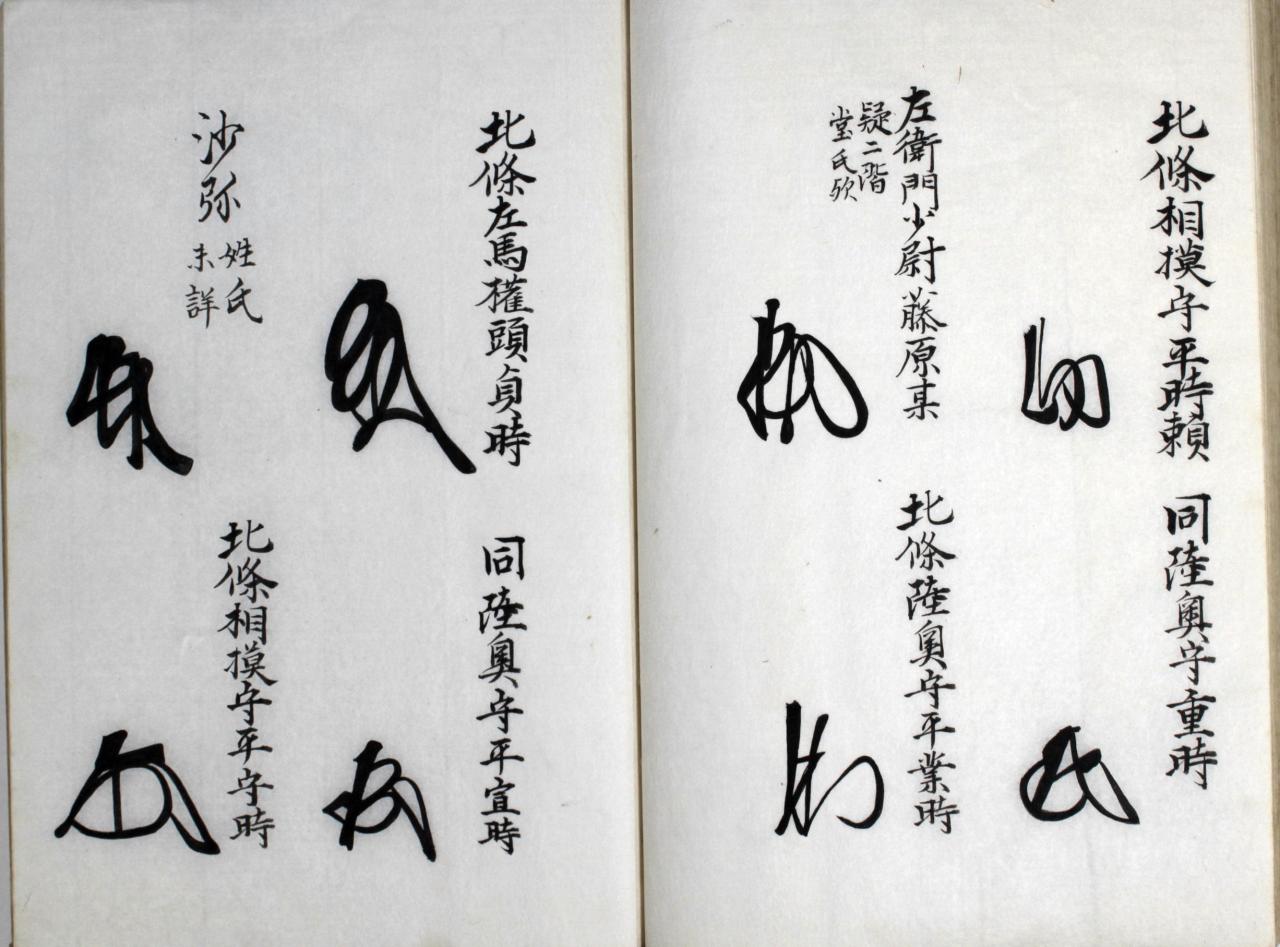 北條相摸守平時頼
同陸奥守重時
左衛門少尉藤原某
疑二階
堂氏歟
北條陸奥守平業時
北條左馬権頭貞時
同陸奥守平宣時
沙弥
姓氏
未詳
北條相摸守平守時